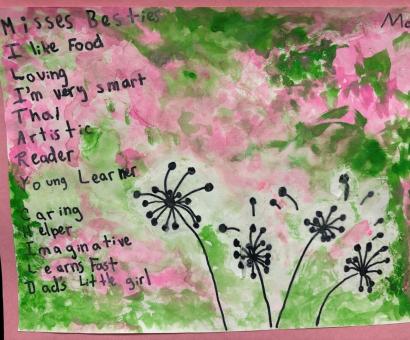 Misses Besties
I like Food
Loving
I'm very smart
Thai
Artistic
Reader
Young Learner
Caring
Helper
Imaginative
Learns Fast
Dads Little girl